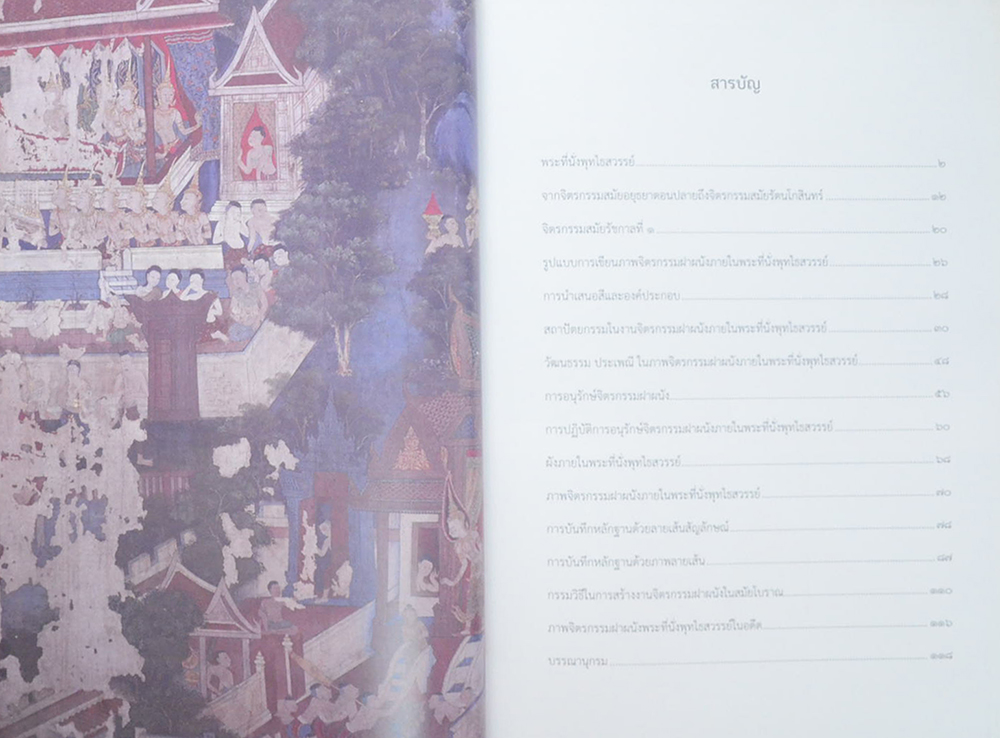 สารบัญ
พระที่นั่งพุทไธสวรรย์ ๒
จากจิตรกรรมสมัยอยุธยาตอนปลายถึงจิตรกรรมสมัยรัตนโกสินทร์ ๑๒
จิตรกรรมสมัยรัชกาลที่ ๑ ๒๐
รูปแบบการเขียนภาพจิตรกรรมฝาผนังภายในพระที่นั่งพุทไธสวรรย์ ๒๖
การนำเสนอสีและองค์ประกอบ ๒๘
สถาปัตยกรรมในงานจิตรกรรมฝาผนังภายในพระที่นั่งพุทไธสวรรย์ ๓๐
วัฒนธรรม ประเพณี ในภาพจิตรกรรมฝาผนังภายในพระที่นั่งพุทไธสวรรย์ ๔๘
การอนุรักษ์จิตรกรรมฝาผนัง ๕๖
การปฏิบัติการอนุรักษ์จิตรกรรมฝาผนังภายในพระที่นั่งพุทไธสวรรย์ ๖๐
ผังภายในพระที่นั่งพุทไธสวรรย์ ๖๘
ภาพจิตรกรรมฝาผนังภายในพระที่นั่งพุทไธสวรรย์ ๗๐
การบันทึกหลักฐานด้วยลายเส้นสัญลักษณ์ ๗๘
การบันทึกหลักฐานด้วยภาพลายเส้น ๘๗
กรรมวิธีในการสร้างงานจิตรกรรมฝาผนังในสมัยโบราณ ๑๑๐
ภาพจิตรกรรมฝาผนังพระที่นั่งพุทไธสวรรย์ในอดีต ๑๑๖
บรรณานุกรม ๑๑๘